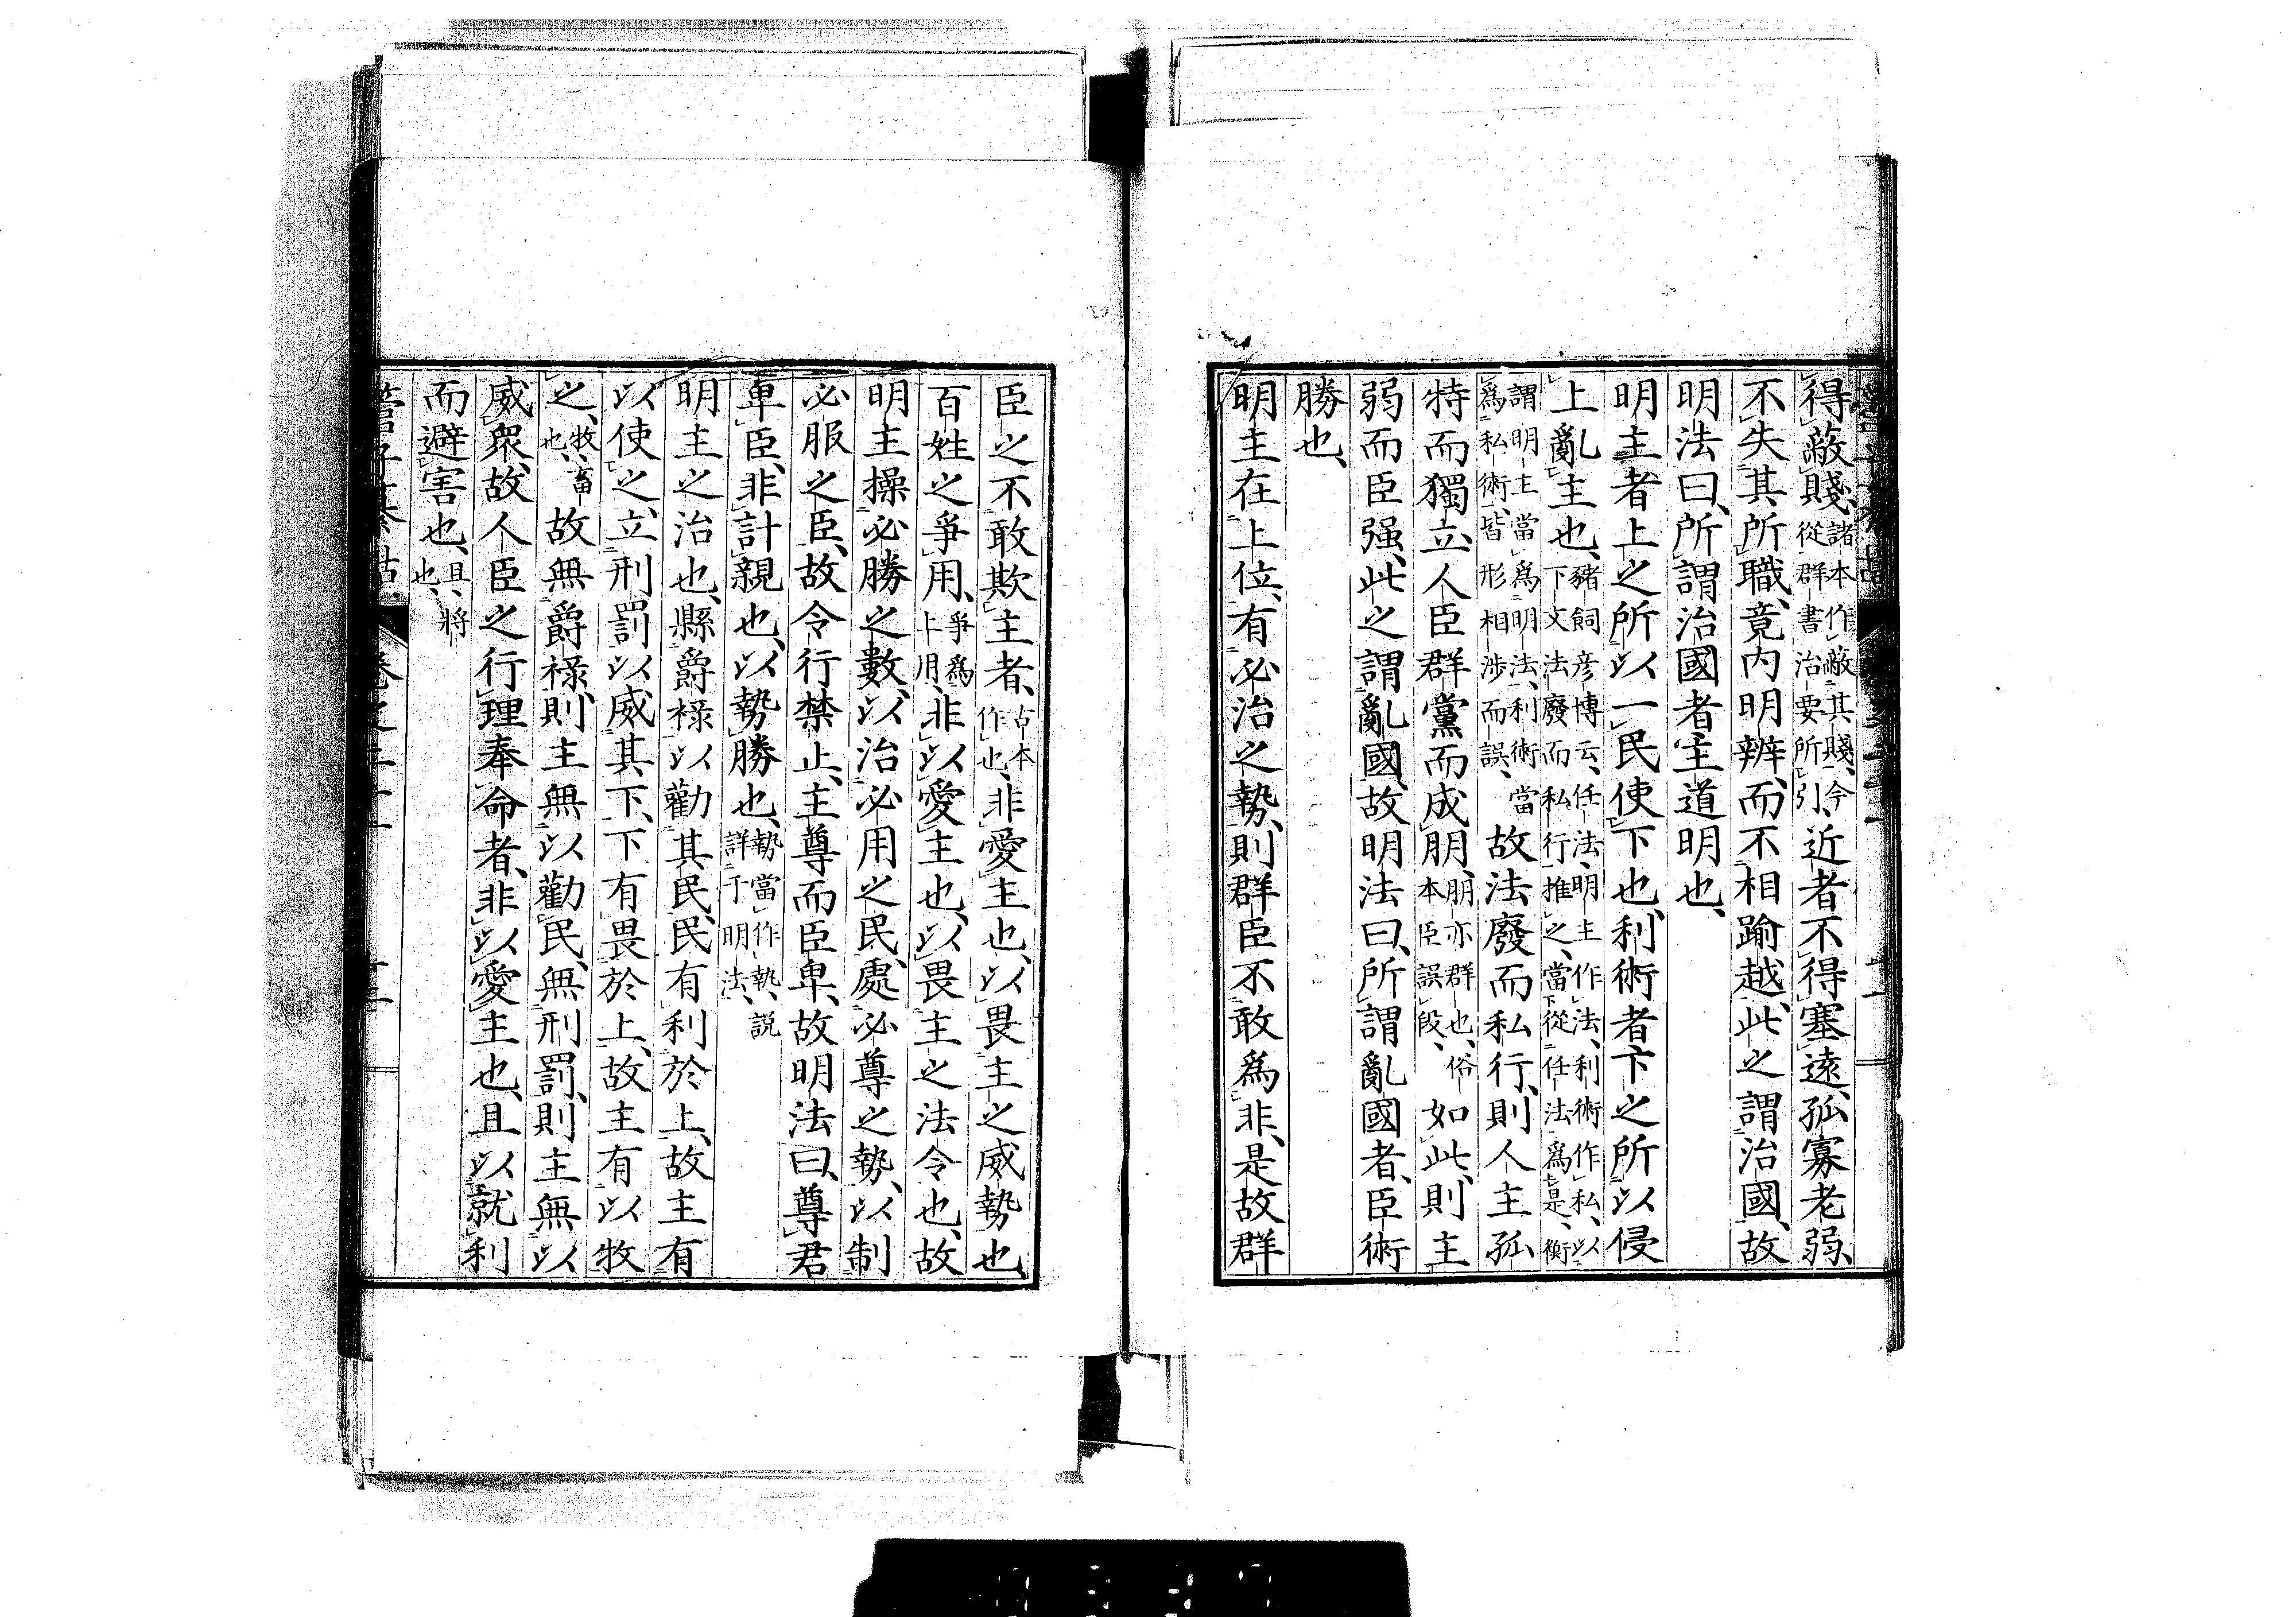 得蔽賤、諸本作蔽其賤、今從群書治要所引、近者不得塞遠、孤寡老弱、
不失其所職、竟內明辨、而不相踰越、此之謂治國、故
明法曰、所謂治國者、主道明也、
明主者上之所以一民使下也、利術者下之所以侵
上亂主也、豬飼彥博云、任法、明主作法、利術作私、以下文法廢而私行推之、當從任法爲是、衡
謂明主當爲明法、利術當爲私術、皆形相涉而誤、故法廢而私行、則人主孤
特而獨立、人臣群黨而成朋、朋亦群也、俗本臣誤段、如此、則主
弱而臣强、此之謂亂國、故明法曰、所謂亂國者、臣術
勝也、
明主在上位、有必治之勢、則群臣不敢爲非、是故群
臣之不敢欺主者、古本作也、非愛主也、以畏主之威勢也、
百姓之爭用、爭爲上用、非以愛主也、以畏主之法令也、故
明主操必勝之數、以治必用之民、處必尊之勢、以制
必服之臣、故令行禁止、主尊而臣卑、故明法曰、尊君
卑臣、非計親也、以勢勝也、勢當作執、説詳于明法、
明主之治也、縣爵祿以勸其民、民有利於上、故主有
以使之、立刑罰以威其下、下有畏於上、故主有以牧
之、牧、畜也、故無爵祿、則主無以勸民、無刑罰、則主無以
威衆、故人臣之行理奉命者、非以愛主也、且以就利
而避害也、且、將也、
管子纂詁 卷之二十一 十二